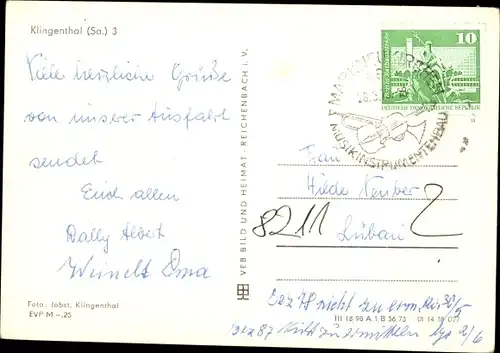 Klingenthal (Sa.) 3
Viele herzliche Grüße
von unserer Ausfahrt
sendet
Euch allen
Albert
Oma
Foto: Jobst, Klingenthal
EVP M –.25
VEB BILD UND HEIMAT · REICHENBACH i. V.
10
DEUTSCHE DEMOKRATISCHE REPUBLIK
MARKNEUKIRCHEN
MUSIKINSTRUMENTENBAU
Frau
Hilde Neuber
8211
Lübau
Bez 78 nicht zu erm.
III 18 98 A 1 B 56.73 01 14 18 077
Bez 87 Nicht zu ermitteln